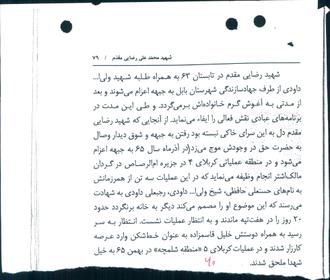 شهید محمد علی رضایی مقدم / ۷۹
شهید رضایی مقدم در تابستان ۶۳ به همراه طلبه شهید ولی‌ا...
داودی از طرف جهادسازندگی شهرستان بابل به جبهه اعزام می‌شوند و بعد
از مدتی به آغوش گرم خانواده‌اش برمی‌گردد. و طی این مدت در
برنامه‌های عبادی نقش فعالی را ایفاء می‌نماید. از آنجایی که شهید رضایی
مقدم دل به این سرای خاکی نبسته بود رفتن به جبهه و شوق دیدار وصال
به حضرت حق در وجودش موج می‌زد(در آذرماه سال ۶۵ به جبهه اعزام
می‌شود و در منطقه عملیاتی کربلای ۴ در جزیره ام‌الرصاص در گردان
مالک‌اشتر انجام وظیفه می‌نماید که در این عملیات سه تن از همرزمانش
به نام‌های حسنعلی حافظی، شیخ ولی‌ا... داودی، رجبعلی داودی به شهادت
می‌رسند که این موضوع او را مصمم می‌کند دیگر به خانه برنگردد حدود
۲۰ روز را در هفت‌تپه ماندند و به انتظار عملیات نشست. انتظار به سر
رسید به همراه دوستش خلیل قاسم‌زاده به عنوان خط‌شکن وارد عرصه
کارزار شدند و در عملیات کربلای ۵ «منطقه شلمچه» در بهمن ۶۵ به خیل
شهدا ملحق شدند.